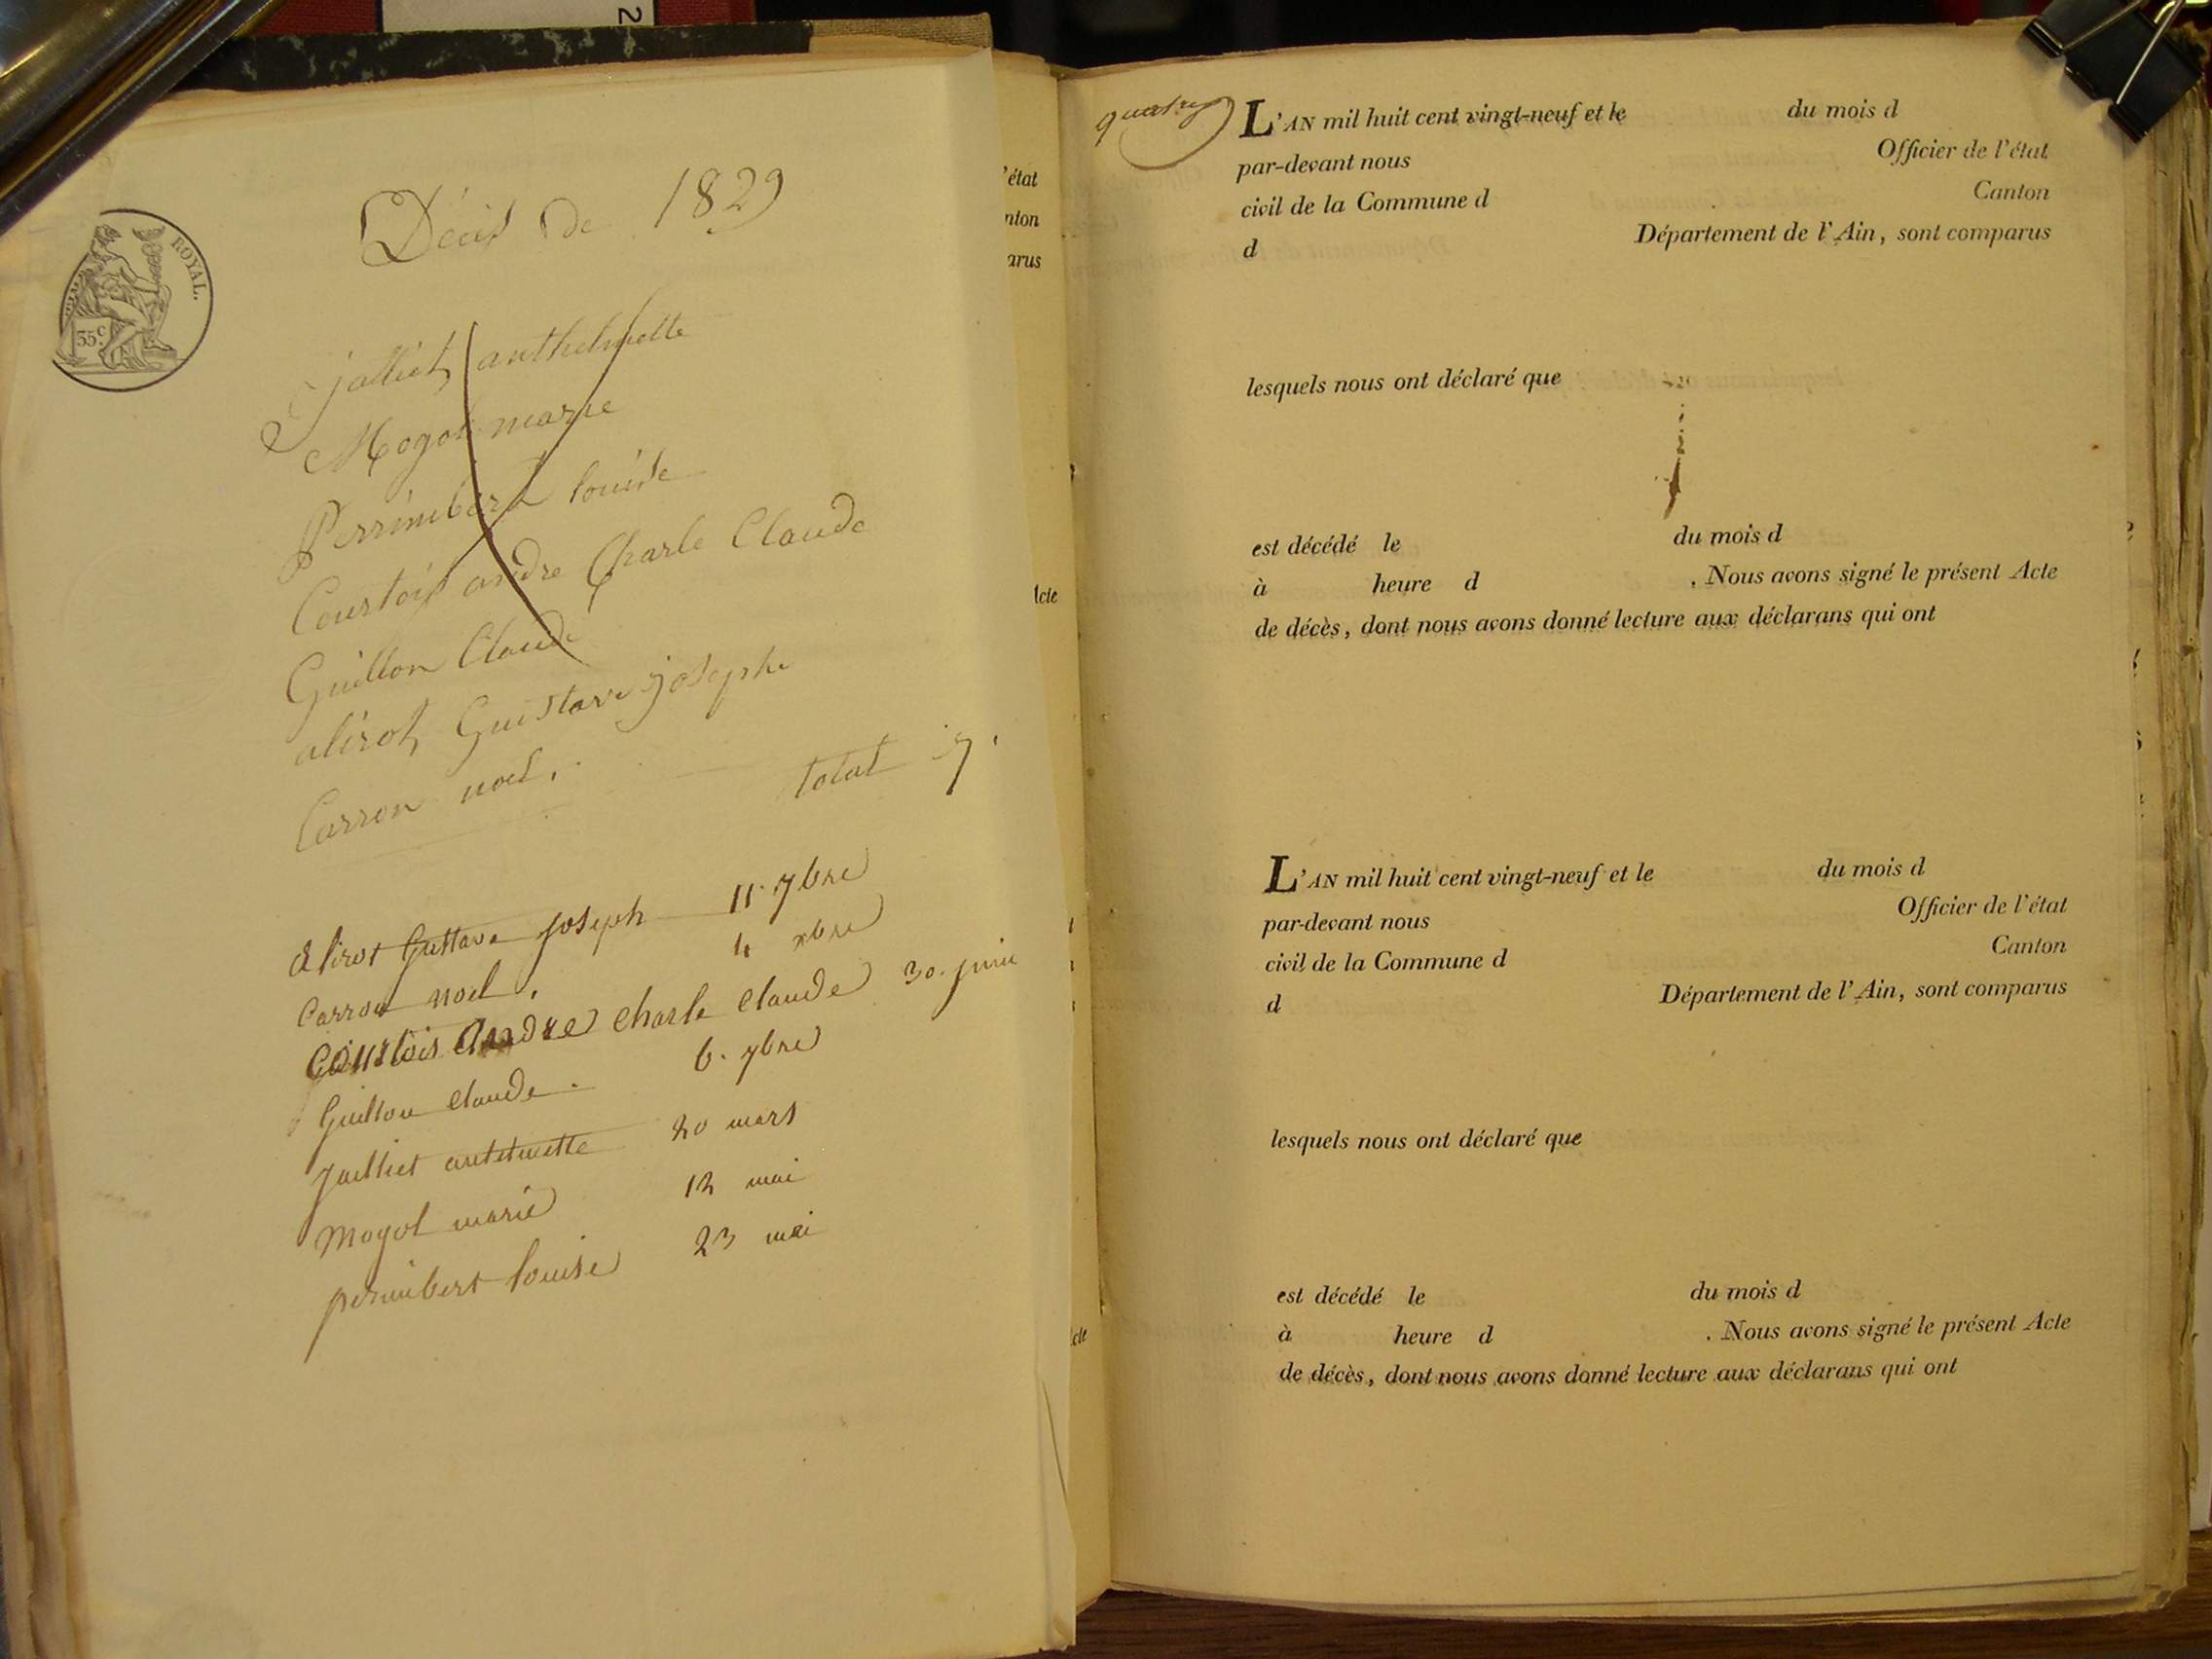 2
ROYAL.
35c.
Décès de 1829
jalliet anthelmette
Mogot marie
Perrimbert louise
Courtois andre Charle Claude
Guillon Claude
alirot Gustave josephe
Carron noel.
total 7.
alirot Gustave joseph 11. 7bre
Carron noel. 4 xbre
Courtois Andre Charle Claude 30. juin
Guillon Claude. 6. 7bre
Jailliet antelmette 20 mars
Mogot marie 12 mai
perimbert louise 23 mai
'état
nton
arus
Acte
cte
quatre
L'AN mil huit cent vingt-neuf et le du mois d
par-devant nous Officier de l'état
civil de la Commune d Canton
d Département de l'Ain, sont comparus
lesquels nous ont déclaré que
est décédé le du mois d
à heure d . Nous avons signé le présent Acte
de décès, dont nous avons donné lecture aux déclarans qui ont
L'AN mil huit cent vingt-neuf et le du mois d
par-devant nous Officier de l'état
civil de la Commune d Canton
d Département de l'Ain, sont comparus
lesquels nous ont déclaré que
est décédé le du mois d
à heure d . Nous avons signé le présent Acte
de décès, dont nous avons donné lecture aux déclarans qui ont